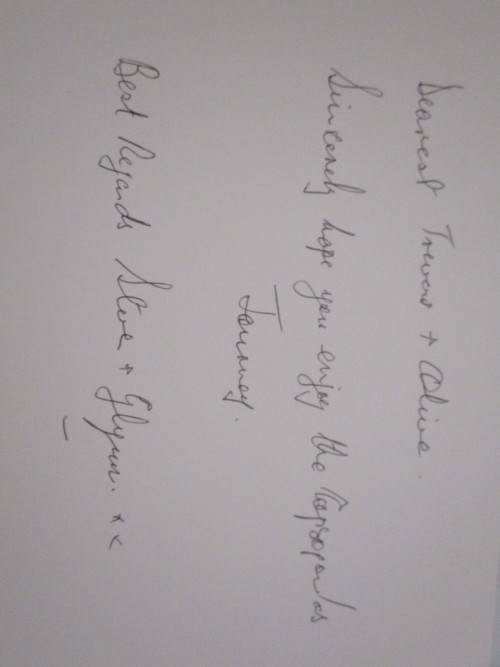 Dearest Trevor + Olive.
Sincerely hope you enjoy the
Journey.
Best Regards Steve + Glynn. x x